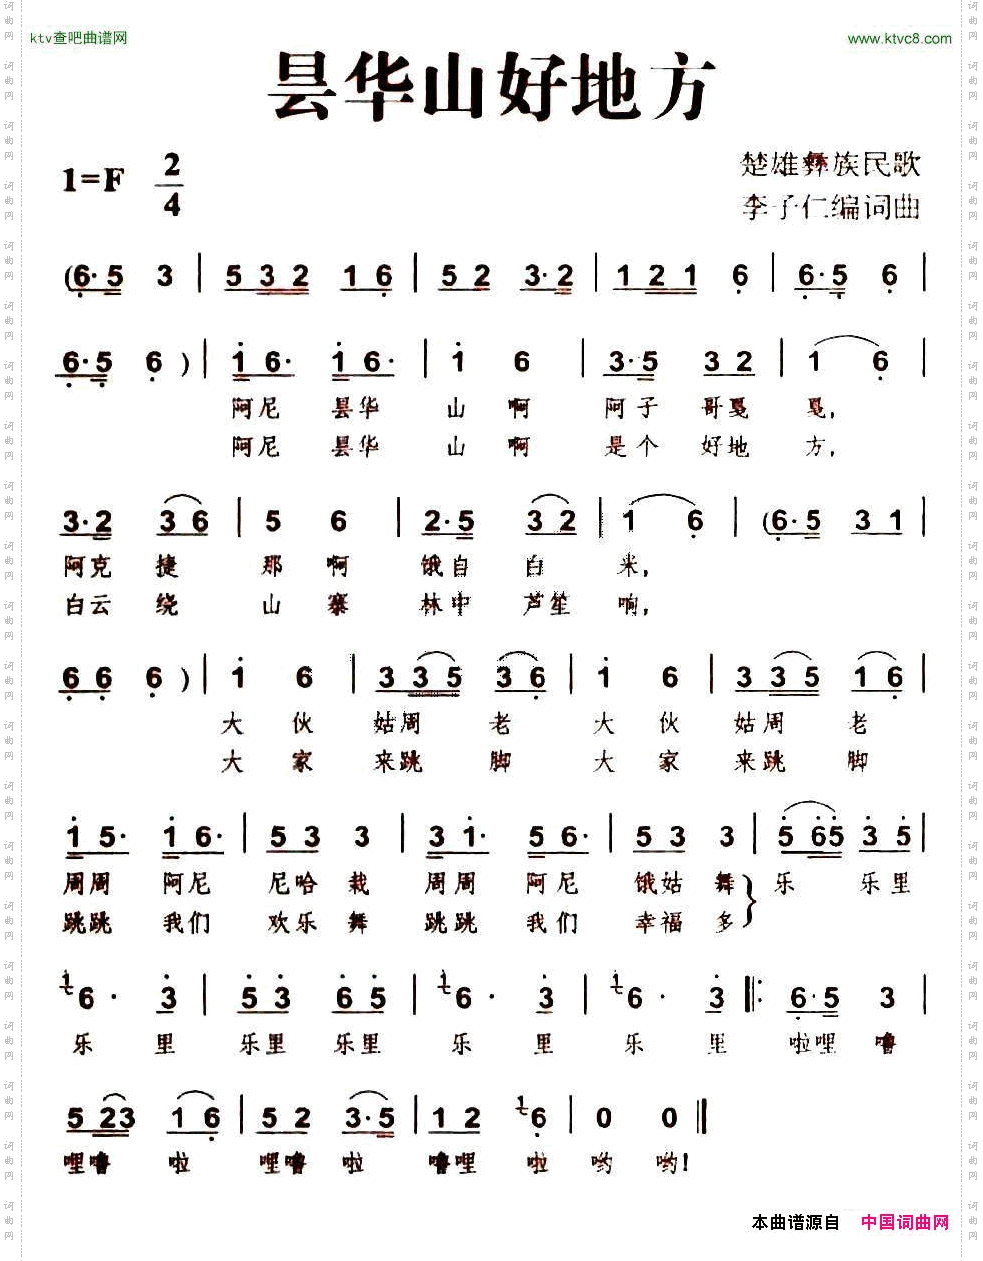 ktv查吧曲谱网 www.ktvc8.com
昙华山好地方
1=F 2/4
楚雄彝族民歌
李子仁编词曲
(6·5 3 | 532 16 | 52 3·2 | 121 6 | 6·5 6 |
6·5 6 ) | 1 6· 1 6· | 1 6 | 3·5 32 | 1 6 |
阿尼 昙华 山 啊 阿子 哥戛 戛,
阿尼 昙华 山 啊 是个 好地 方,
3·2 36 | 5 6 | 2·5 32 | 1 6 | (6·5 31 |
阿克 捷 那 啊 饿自 白 米,
白云 绕 山 寨 林中 芦笙 响,
66 6 ) | 1 6 | 335 36 | 1 6 | 335 16 |
大 伙 姑周 老 大 伙 姑周 老
大 家 来跳 脚 大 家 来跳 脚
1 5· 1 6· | 53 3 | 3 1· 5 6· | 53 3 | 565 35 |
周周 阿尼 尼哈 栽 周周 阿尼 饿姑 舞 乐 乐里
跳跳 我们 欢乐 舞 跳跳 我们 幸福 多
1 6· 3 | 53 65 | 1 6· 3 | 1 6· 3 ‖: 6·5 3 |
乐 里 乐里 乐里 乐 里 乐 里 啦哩 噜
523 16 | 52 3·5 | 12 1 6 | 0 0 ‖
哩噜 啦 哩噜 啦 噜哩 啦 哟 哟!
本曲谱源自 中国词曲网